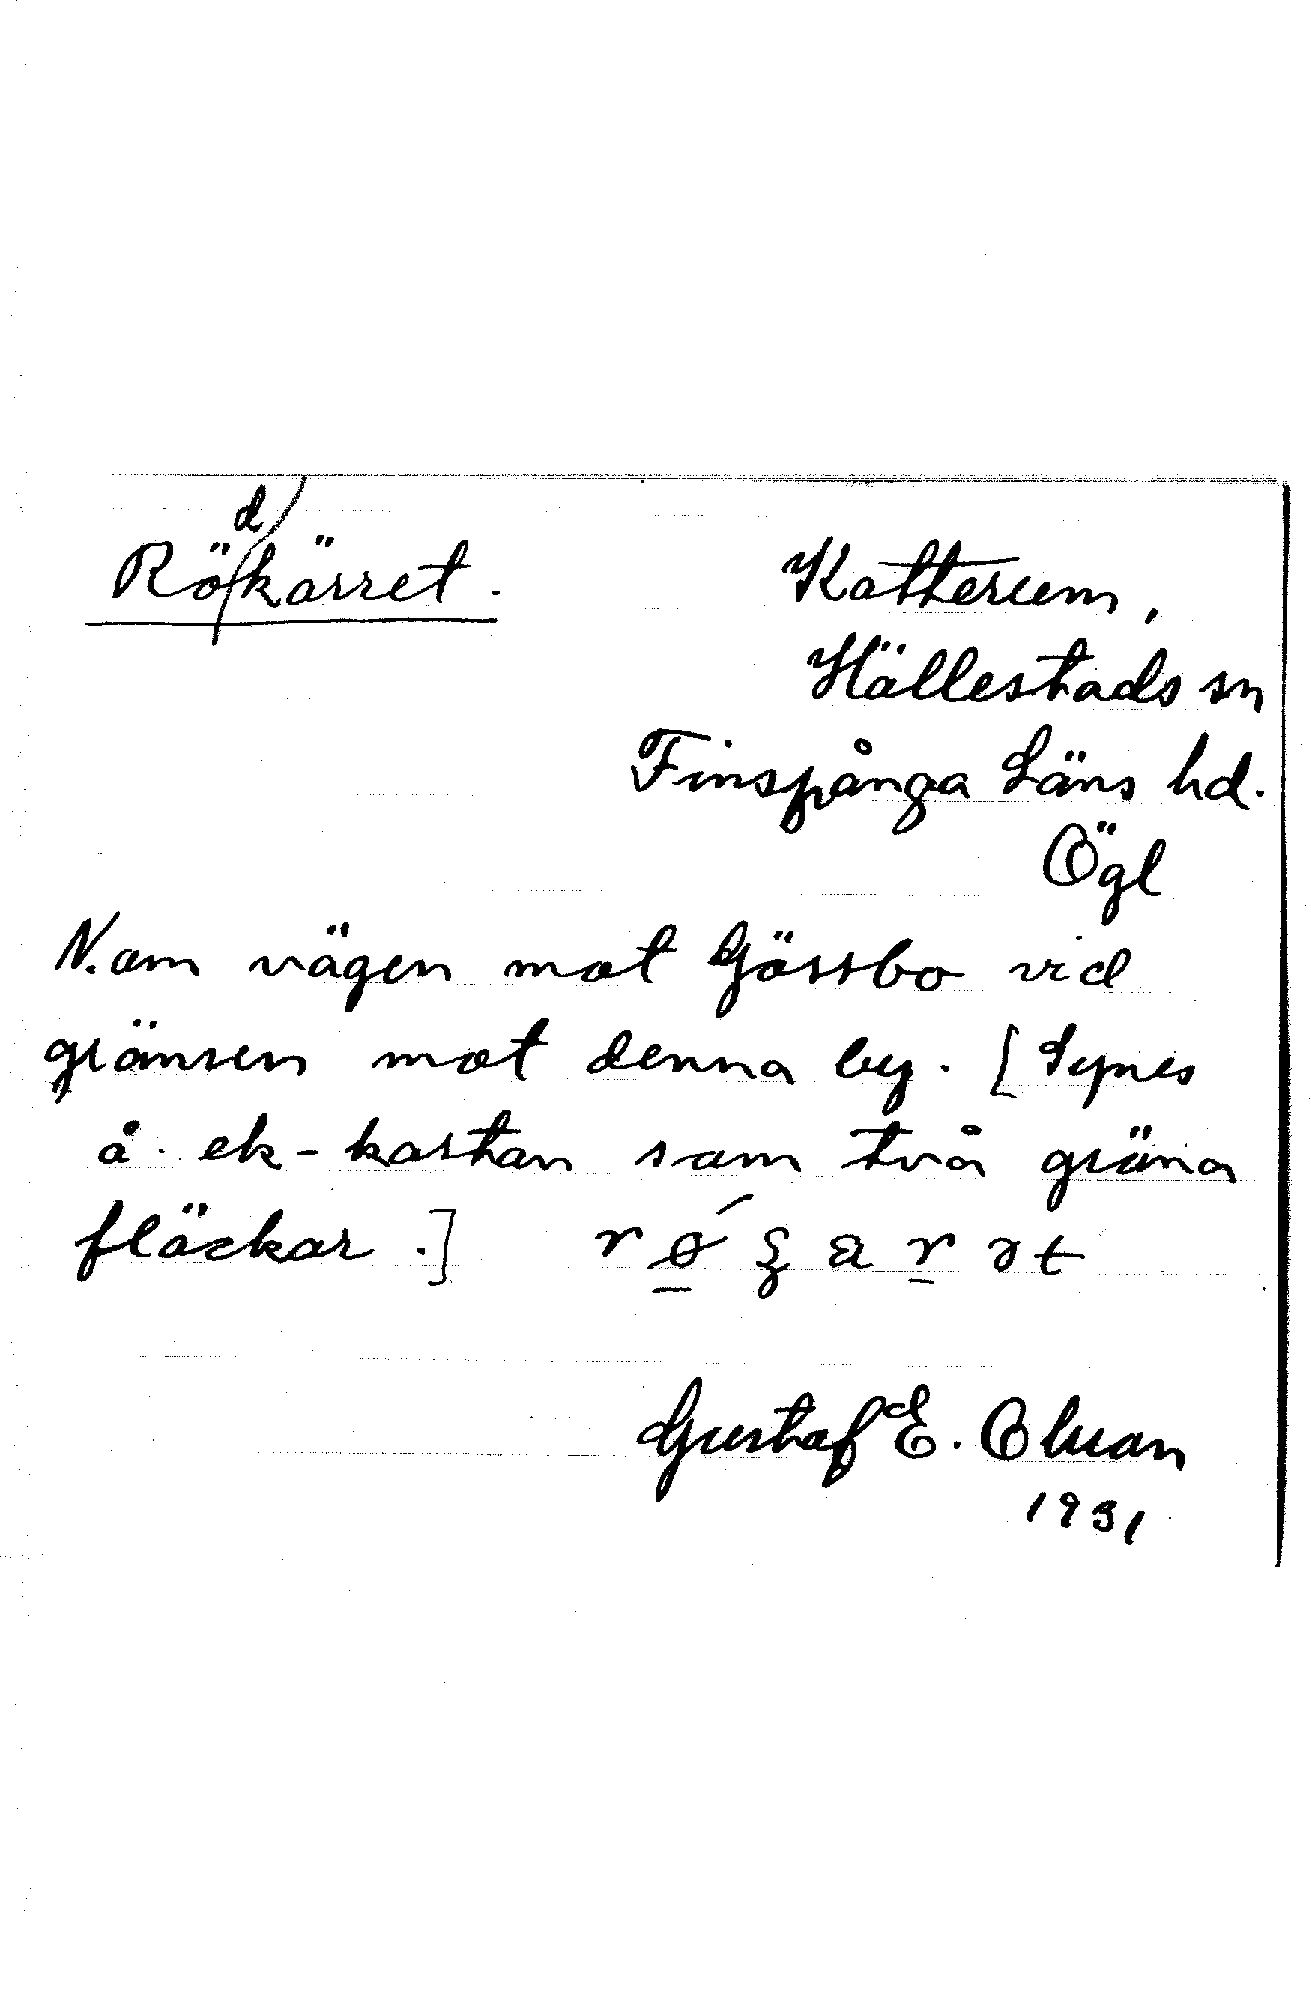 Rödkärret. Katterum,
Hällestads sn
Finspånga Läns hd.
Ögl
N. om vägen mot Gössbo vid
gränsen mot denna by. [Synes
å ek-kartan som två gröna
fläckar.]
Gustaf E. Oluan
1931